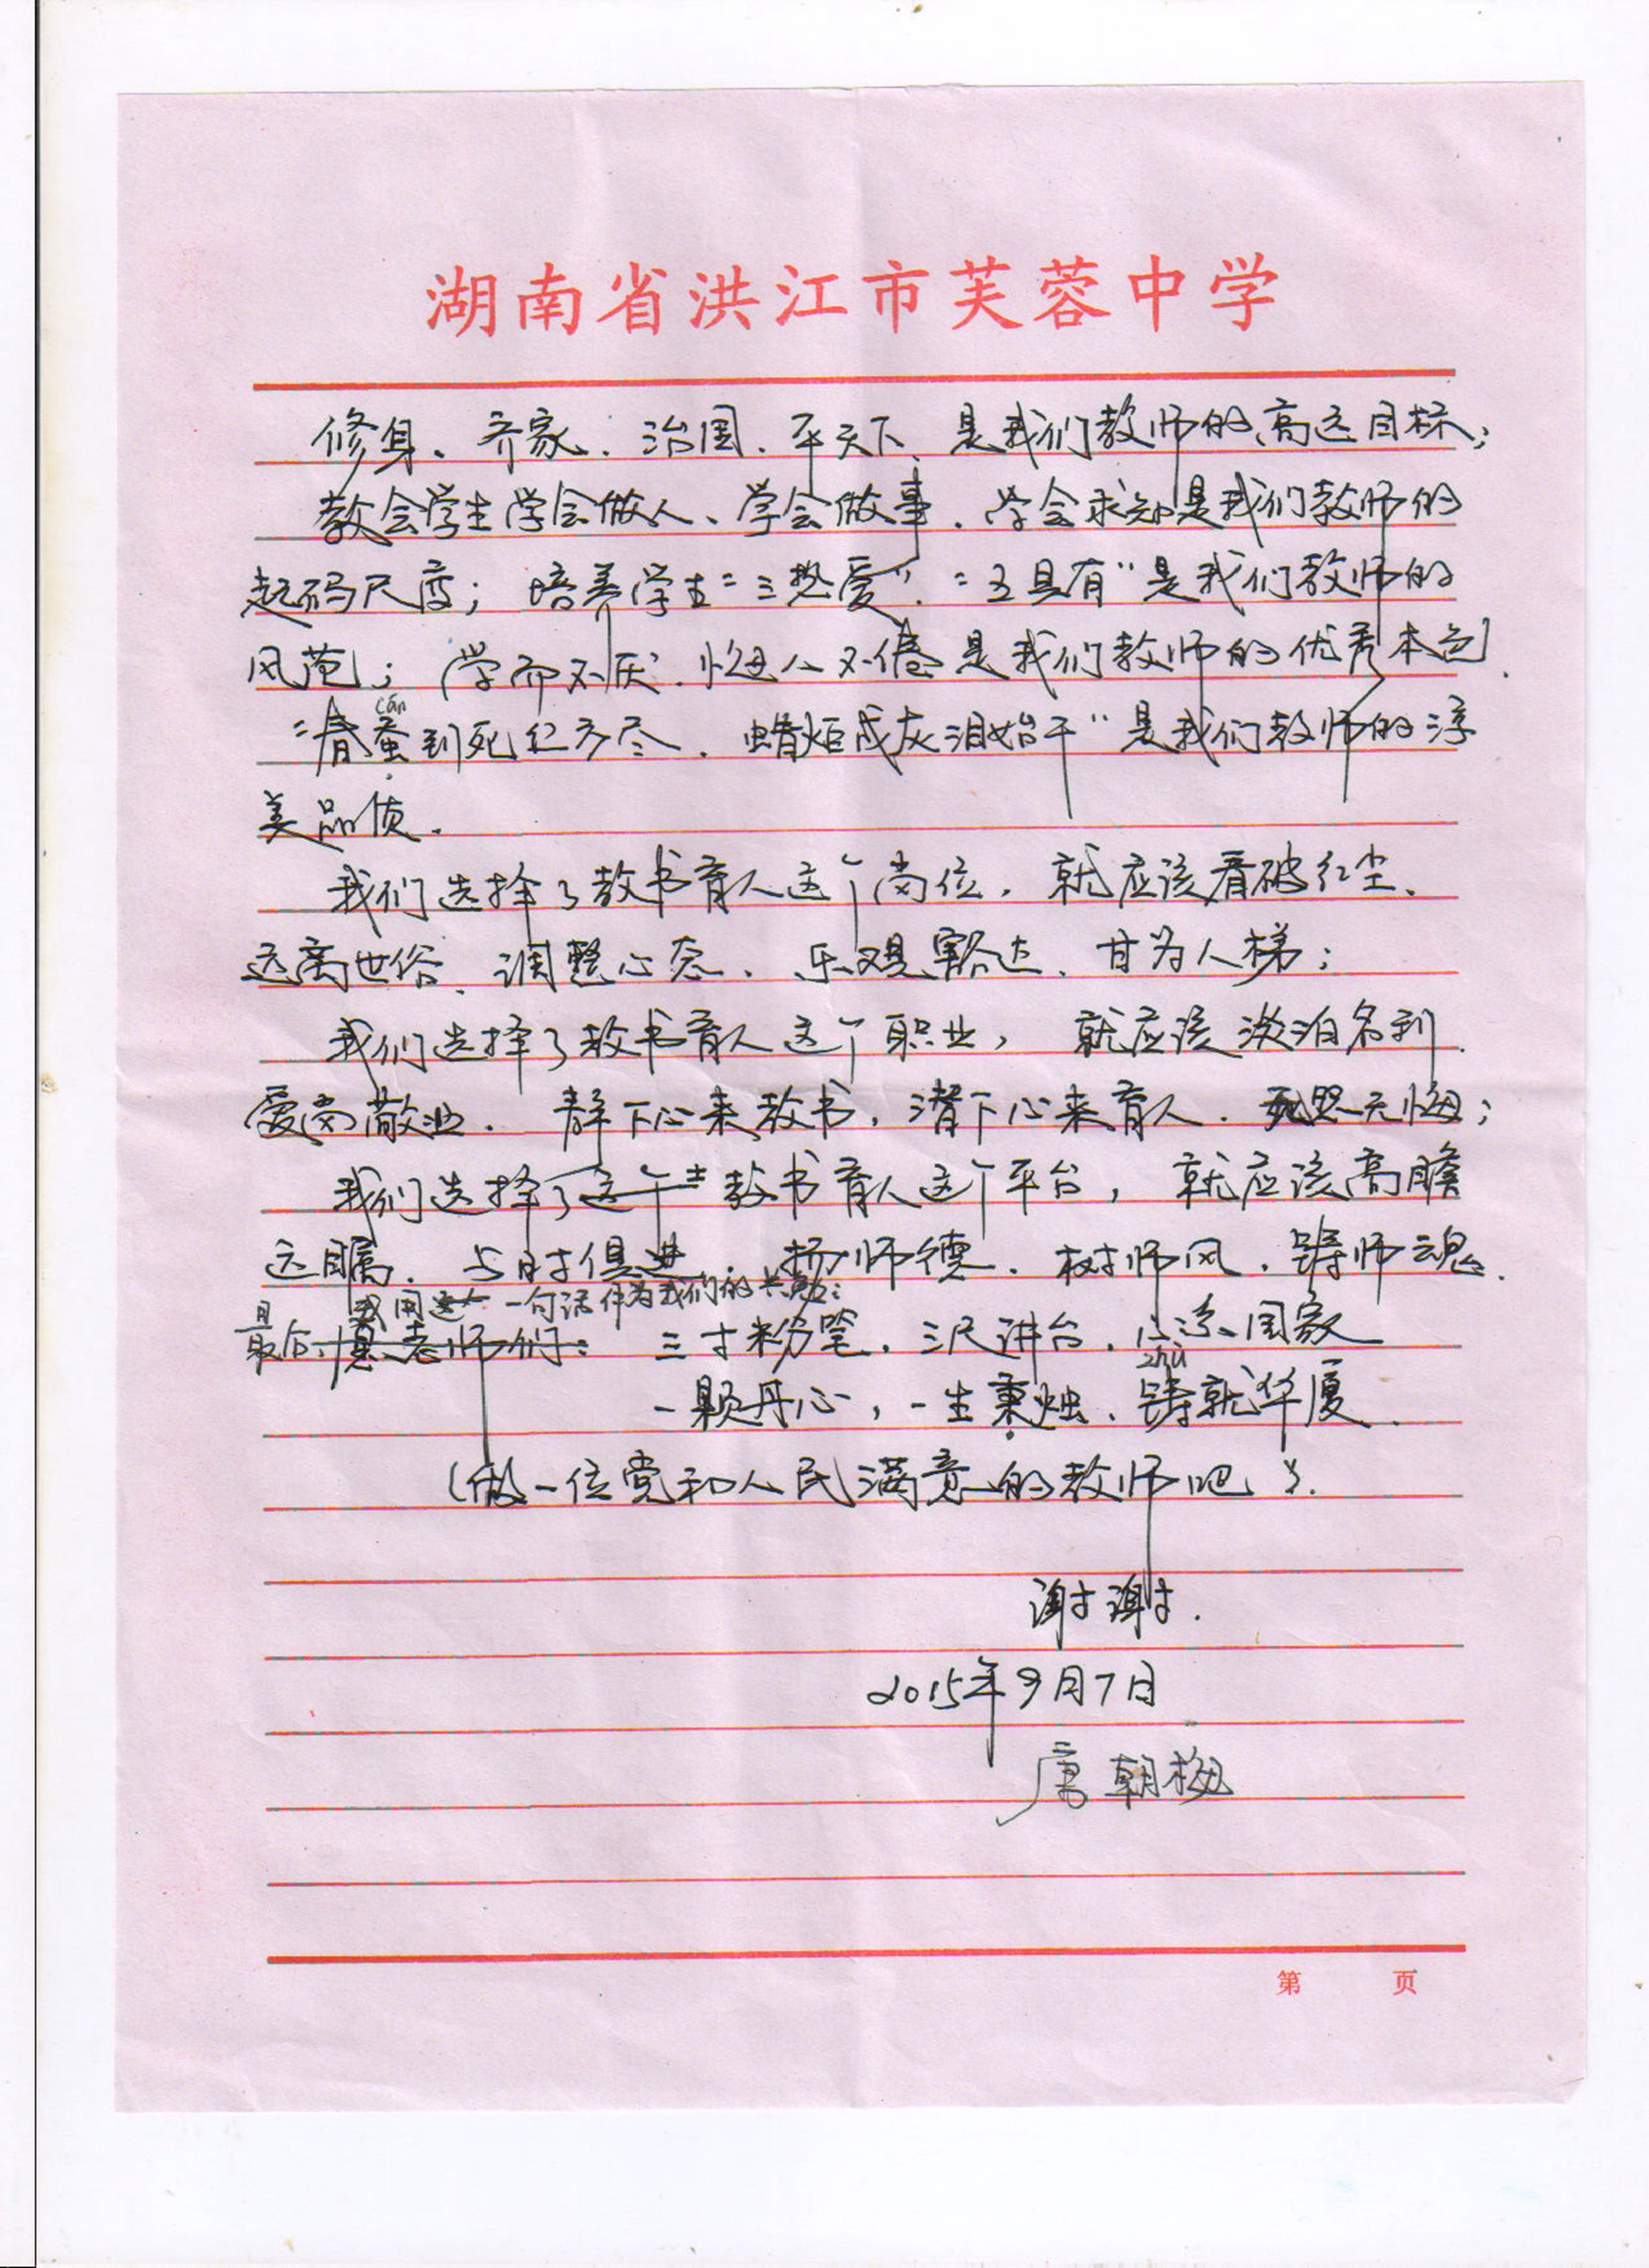 湖南省洪江市芙蓉中学
修身、齐家、治国、平天下、是我们教师的高远目标；
教会学生学会做人、学会做事、学会求知是我们教师的
起码尺度；培养学生“三热爱”、“五具有”是我们教师的
风范；学而不厌、悔人不倦是我们教师的优秀本色、
cán
“春蚕到死丝方尽、蜡炬成灰泪始干”是我们教师的淳
美品质.
我们选择了教书育人这个岗位，就应该看破红尘、
远离世俗、调整心态、乐观豁达、甘为人梯；
我们选择了教书育人这个职业，就应该淡泊名利、
爱岗敬业. 静下心来教书，潜下心来育人. 无怨无悔；
我们选择了这个教书育人这个平台，就应该高瞻
远瞩. 与时俱进. 扬师德、树师风、铸师魂.
我用这一句话作为我们的共勉：
最后 老师们： 三寸粉笔、三尺讲台、心系国家
zhù
一颗丹心，一生秉烛、铸就华厦.
（做一位党和人民满意的教师吧）.
谢谢.
2015年9月7日
唐朝梅
第 页